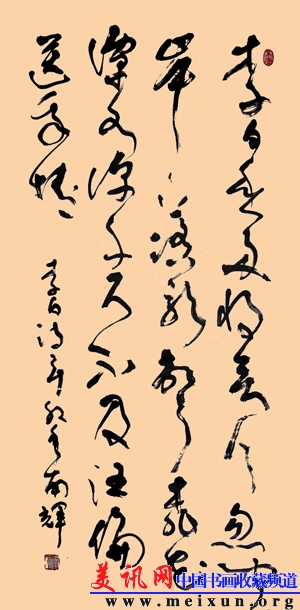 李白乘舟將欲行忽聞
岸上踏歌聲桃花
潭水深千尺不及汪倫
送我情
李白詩 辛卯 南輝
美讯网 中国书画收藏频道
www.meixun.org